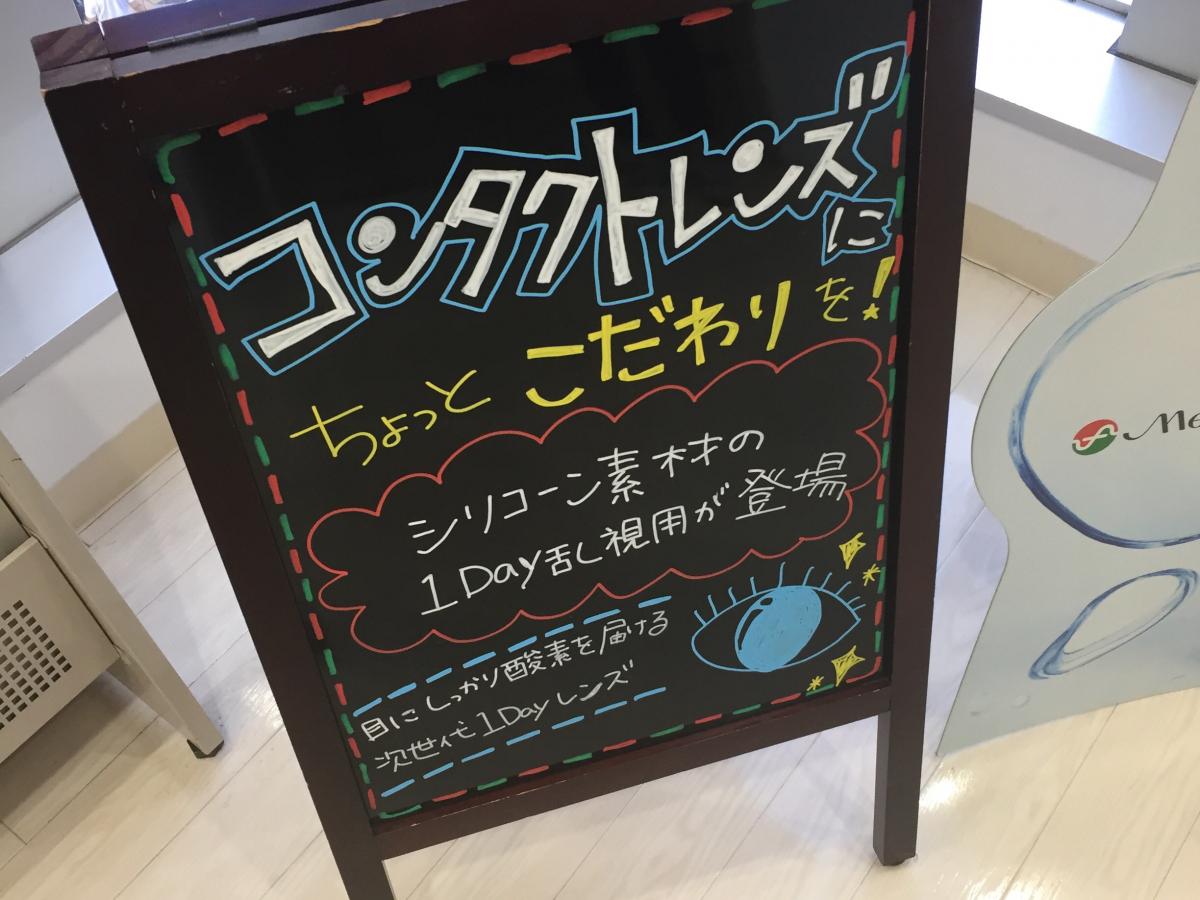 コンタクトレンズに
ちょっとこだわりを!
シリコーン素材の
1Day乱視用が登場
目にしっかり酸素を届ける
次世代1Dayレンズ
Me